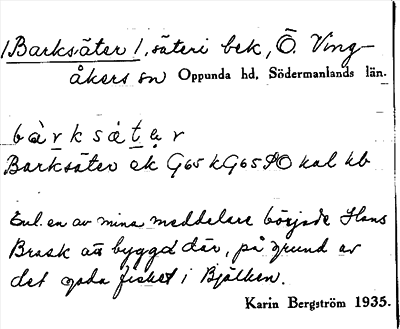 /Barksäter/, säteri bek, Ö. Ving-
åkers sn Oppunda hd, Södermanlands län.
bàrksätẹr
Barksäter ek G65 kG65 PO kal kb
Enl. en av mina meddelare började Hans
Brask att byggd där, på grund av
det goda fisket i Bjälken.
Karin Bergström 1935.